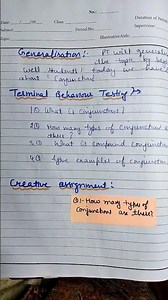 Date
Class
Duration of Period
Subject
Period No.
Topic
Illustrative Aids
Generalisation :- PT will generalise
the topic by
Well students today we have
about "Conjunction"
Terminal Behaviour Testing →
1Q What is Conjunction?
2Q How many types of Conjunction
there?
3Q What is Compound Conjunction
4Q Give examples of Conjunction
Creative assignment:
Q1- How many types of
Conjunctions are there?